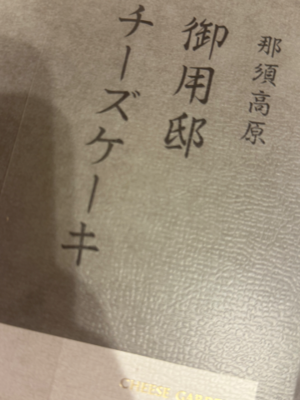 那須高原
御用邸
チーズケーキ
CHEESE